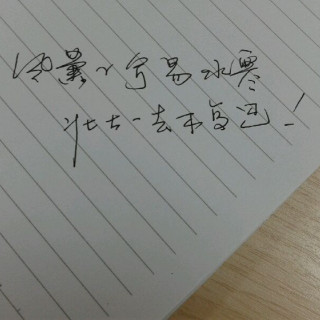 风萧々兮易水寒
壮士一去不复返！